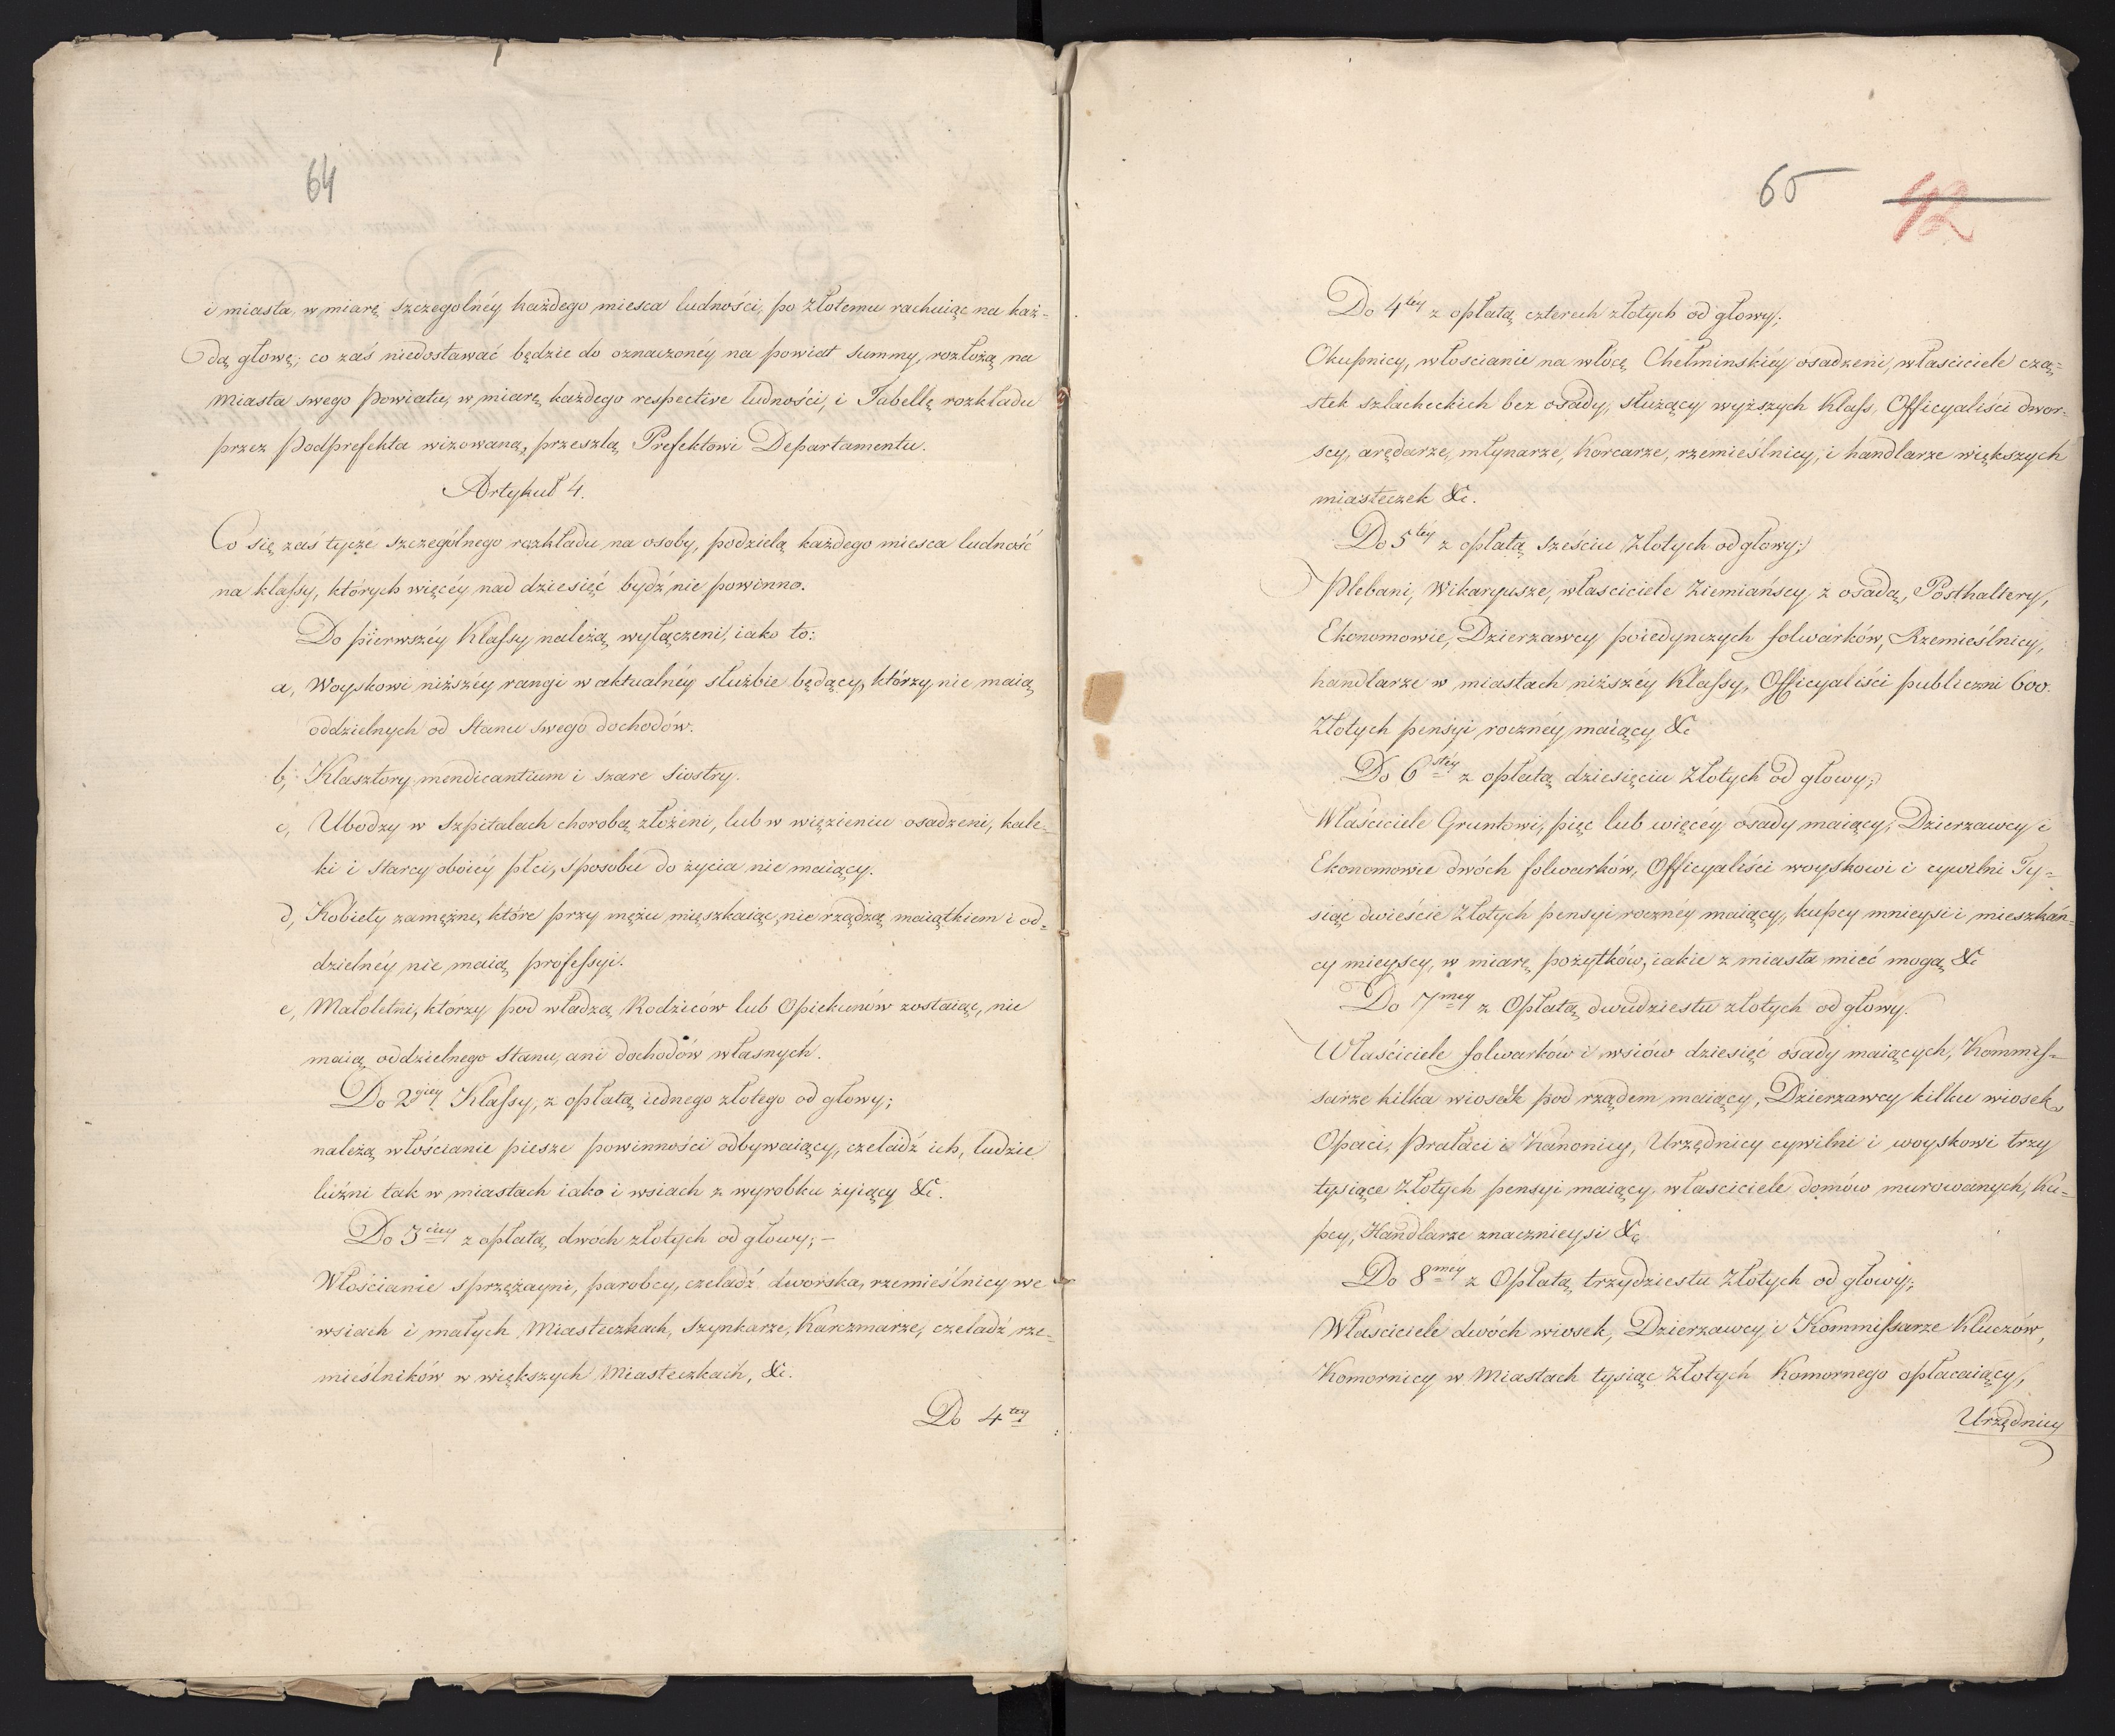 64
i miasta, w miarę szczegolnéy każdego miesca ludności, po złotemu rachuiąc na każ-
dą głowę; co zaś niedostawać będzie do oznaczonéy na powiat summy, rozłożą na
miasta swego Powiatu, w miarę każdego respective ludności, i Tabellę rozkładu
przez Podprefekta wizowaną, przeszlą Prefektowi Departamentu.
Artykuł 4.
Co się zaś tycze szczególnego rozkładu na osoby, podzielą każdego miesca ludność
na klassy, których więcéy nad dziesięć bydź nie powinno.
Do pierwszéy Klassy należą wyłączeni, iako to:
a, Woyskowi niższéy rangi w aktualnéy służbie będący, którzy nie maią
oddzielnych od Stanu swego dochodów.
b, Klasztory mendicantium i szare Siostry.
c, Ubodzy w Szpitalach chorobą złożeni, lub w więzieniu osadzeni, kale-
ki i Starcy oboiéy płci, sposobu do życia nie maiący.
d, Kobiety zamężne, które przy mężu mięszkaiąc, nie rządzą maiątkiem i od-
dzielnéy nie maią professyi.
e, Małoletni, którzy pod władzą Rodziców lub Opiekunów zostaiąc, nie
maią oddzielnego Stanu, ani dochodów własnych.
Do 2giéy Klassy, z opłatą iednego złotego od głowy;
należą włościanie piesze powinności odbywaiący, czeladź ich, ludzie
luźni tak w miastach iako i wsiach z wyrobku żyiący &c.
Do 3ciéy z opłatą dwóch złotych od głowy; –
Włościanie sprzężayni, parobcy, czeladź dworska, rzemieślnicy we
wsiach i małych Miasteczkach, Szynkarze, Karczmarze, czeladź rze-
mieślników w większych Miasteczkach, &c.
Do 4téy
65 42
Do 4téy z opłatą czterech złotych od głowy;
Okupnicy, włoscianie na włócę Chełminskiéy osadzeni, właściciele czą-
stek szlacheckich bez osady, służący wyższych Klass, Officyaliści dwor-
scy, arędarze, młynarze, Korcarze, rzemieślnicy, i handlarze większych
miasteczek &c.
Do 5téy z opłatą sześciu Złotych od głowy;
Plebani, Wikaryusze, właściciele Ziemiańscy z osadą, Posthaltery,
Ekonomowie, Dzierzawcy poiedynczych folwarków, Rzemieślnicy,
handlarze w miastach niższéy Klassy, Officyaliści publiczni 600.
Złotych pensyi rocznéy maiący &c
Do 6stéy z opłatą dziesięciu Złotych od głowy;
Właściciele Gruntowi, pięc lub więcéy osady maiący, Dzierzawcy i
Ekonomowie dwóch folwarków, Officyaliści woyskowi i cywilni Ty-
siąc dwieście Złotych pensyi rocznéy maiący, kupcy mnieysi i mieszkań-
cy mieyscy, w miarę pożytków, iakie z miasta mieć mogą &c
Do 7méy z Opłatą dwudziestu złotych od głowy.
Właściciele folwarków i wsiów dziesięć osady maiących, Kommis-
sarze kilka wiosek pod rządem maiący, Dzierzawcy kilku wiosek,
Opaci, Prałaci i Kanonicy, Urzędnicy cywilni i woyskowi trzy
tysiące Złotych pensyi maiący, właściciele domów murowanych, Ku-
pcy, Handlarze znacznieysi &c
Do 8méy z Opłatą trzydziestu Złotych od głowy;
Właściciele dwóch wiosek, Dzierzawcy i Kommissarze Kluczów,
Komornicy w Miastach tysiąc Złotych Komornego opłacaiący,
Urzędnicy